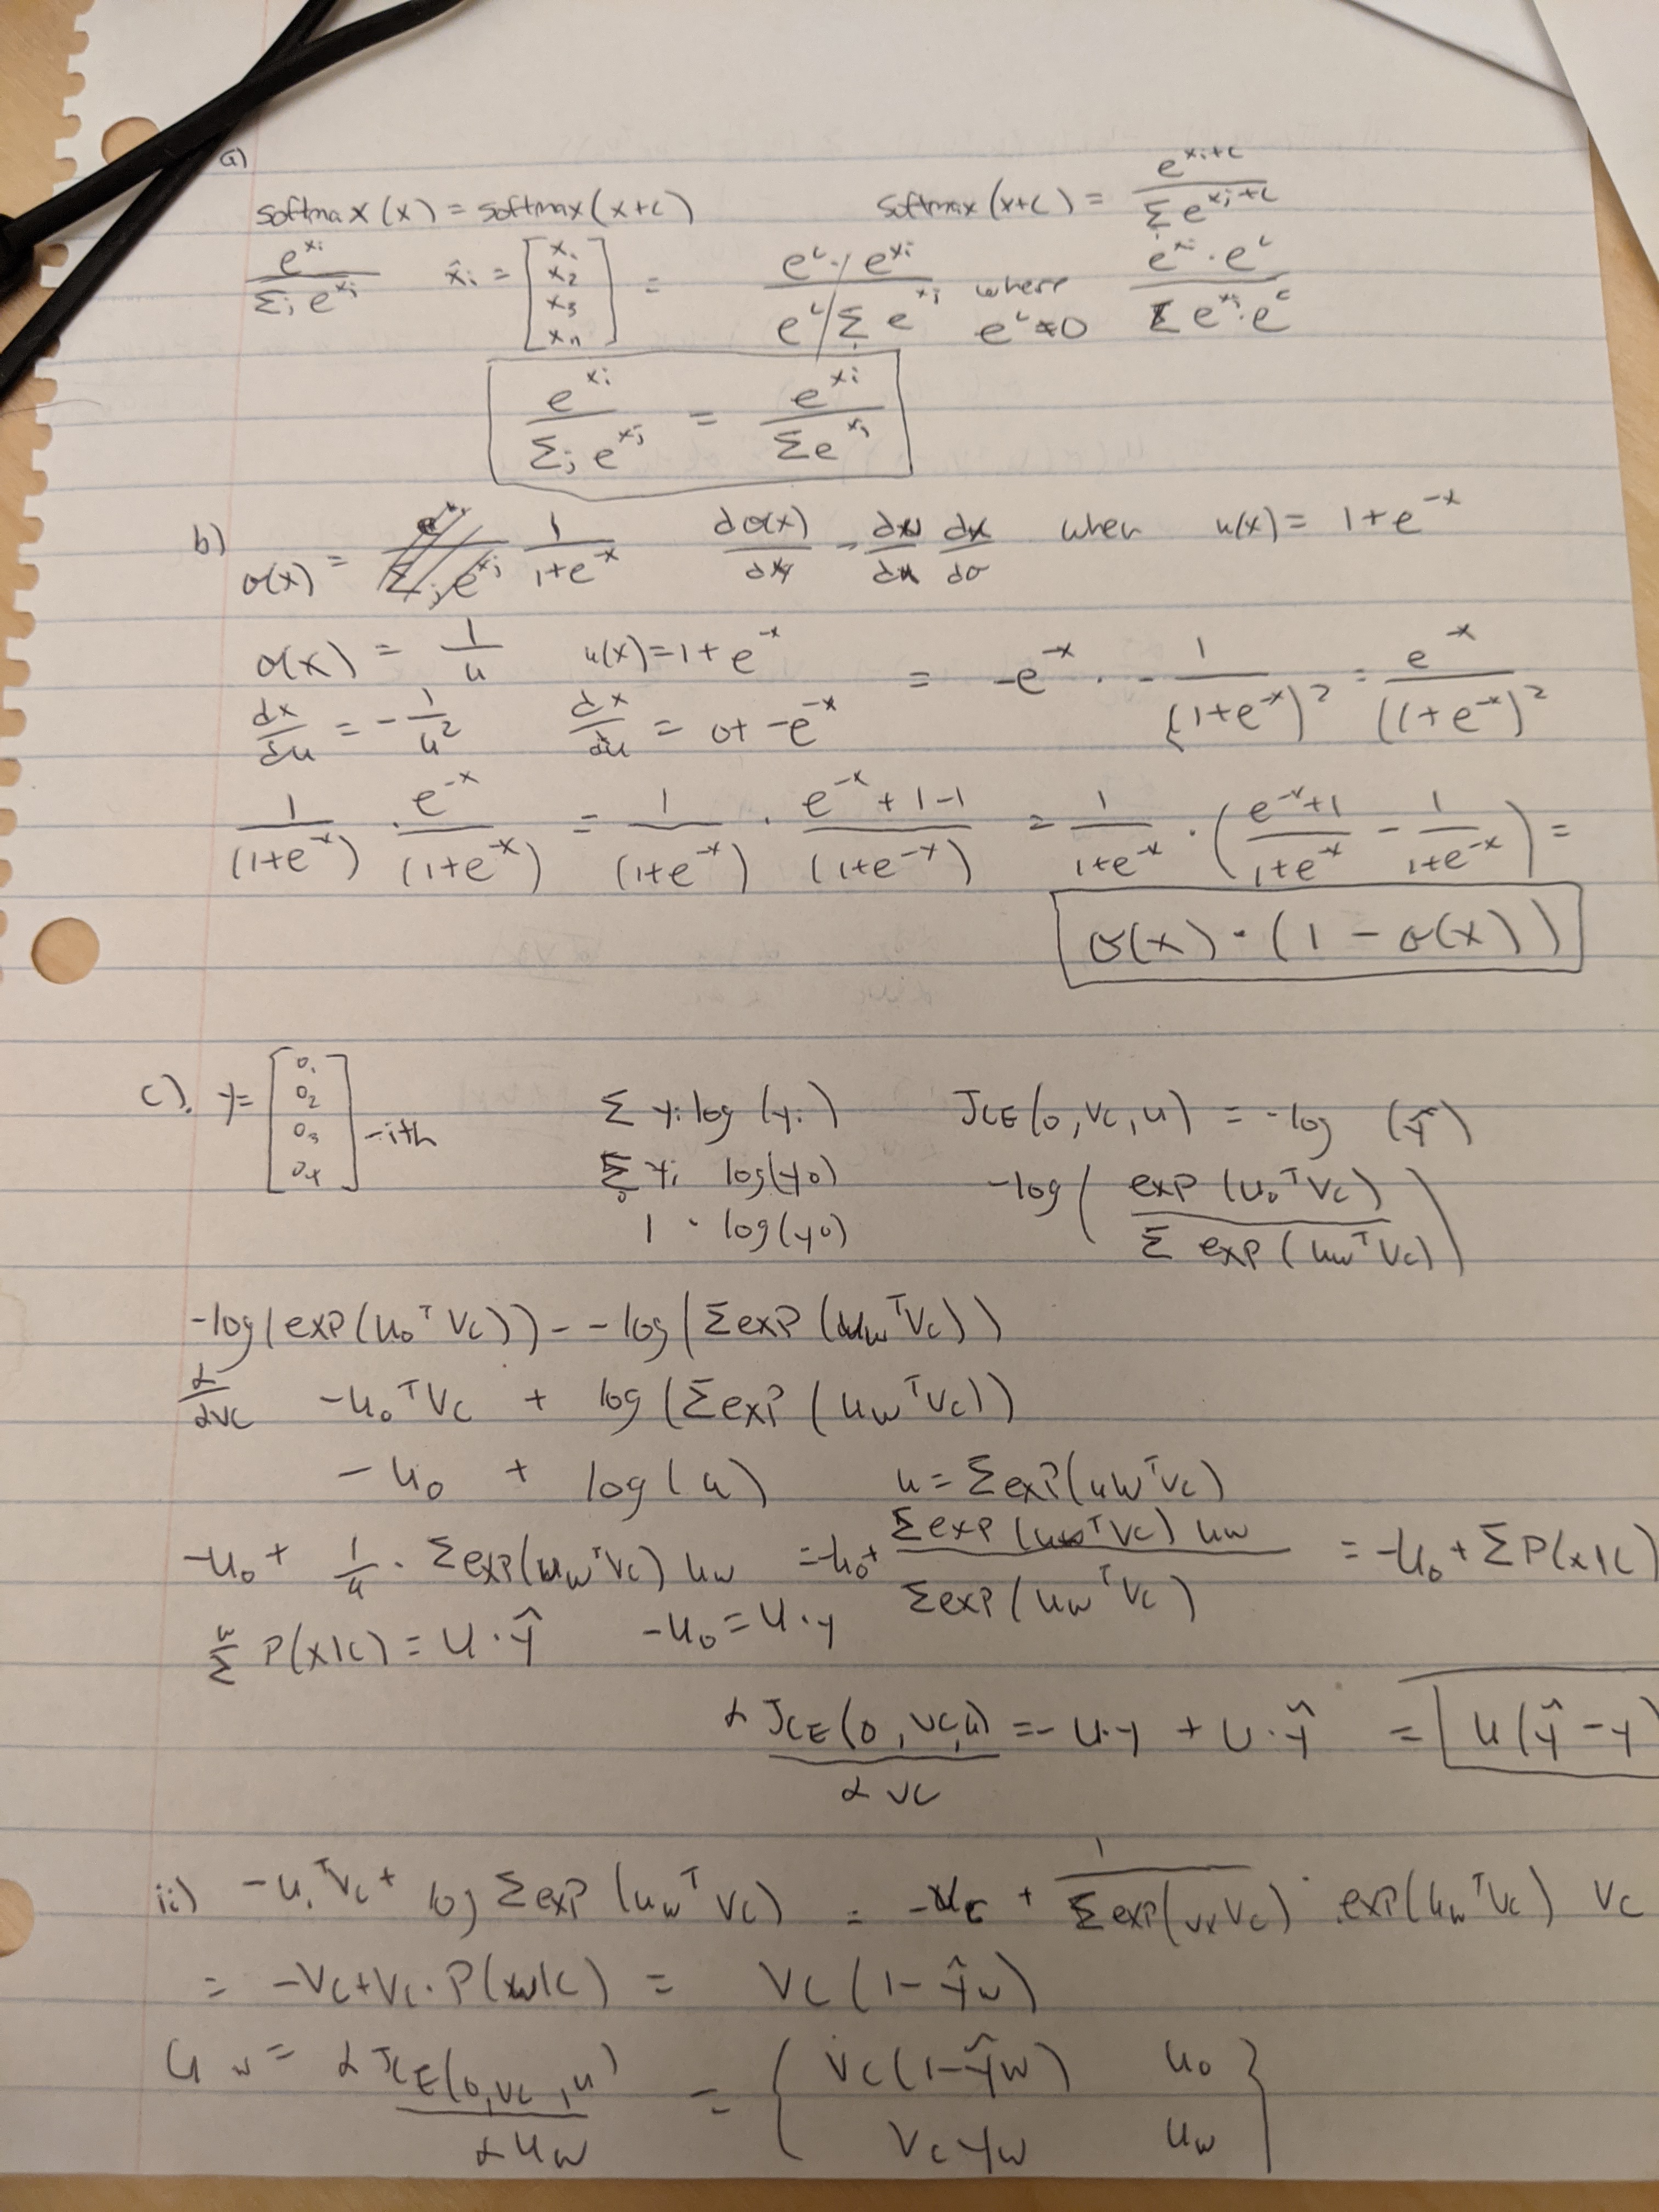 a)
softmax(x) = softmax(x+c)    softmax(x+c) = e^{x_i+c} / Σ_j e^{x_j+c}
e^{x_i} / Σ_j e^{x_j}    x̂_i = [x_1 x_2 x_3 x_n] = e^c · e^{x_i} / e^c Σ e^{x_j} where e^c ≠ 0    e^{x_i} · e^c / Σ e^{x_j} · e^c
e^{x_i} / Σ_j e^{x_j} = e^{x_i} / Σ e^{x_j}
b) σ(x) = 1 / 1+e^{-x}    dσ(x) / dx = du / dx dx / dσ when u(x) = 1+e^{-x}
σ(x) = 1/u    u(x) = 1+e^{-x}
dx/du = -1/u^2    dx/du = 0+ -e^{-x}    = -e^{-x} · - 1 / (1+e^{-x})^2 = e^{-x} / (1+e^{-x})^2
1 / (1+e^{-x}) · e^{-x} / (1+e^{-x}) = 1 / (1+e^{-x}) · e^{-x}+1-1 / (1+e^{-x}) = 1 / 1+e^{-x} · (e^{-x}+1 / 1+e^{-x} - 1 / 1+e^{-x}) =
σ(x) · (1 - σ(x))
c). y = [0_1 0_2 0_3 0_4] -ith    Σ y_i log(y_i)    J_CE(o, vc, u) = -log (ŷ)
Σ y_i log(yo)    -log( exp(u_o^T vc) / Σ exp(u_w^T vc) )
1 · log(yo)
-log(exp(u_o^T vc)) - -log(Σ exp(u_w^T vc))
∂/∂vc -u_o^T vc + log(Σ exp(u_w^T vc))
-u_o + log(u)    u = Σ exp(uw^T vc)
-u_o + 1/u · Σ exp(u_w^T vc) uw = -u_o + Σ exp(uw^T vc) uw / Σ exp(uw^T vc) = -u_o + Σ P(x|c)
Σ^w P(x|c) = U · ŷ    -u_o = U · y
∂ J_CE(o, vc, u) / ∂ vc = - U · y + U · ŷ = U(ŷ - y)
ii) -u_o^T vc + log Σ exp(u_w^T vc) = + 1 / Σ exp( vc) · exp(u_w^T vc) vc
= -vc + vc · P(xw|c) = vc(1 - ŷw)
u w = ∂ J_CE(o, vc, u) / ∂ uw = { vc(1 - ŷw) u_o
vc yw u_w }